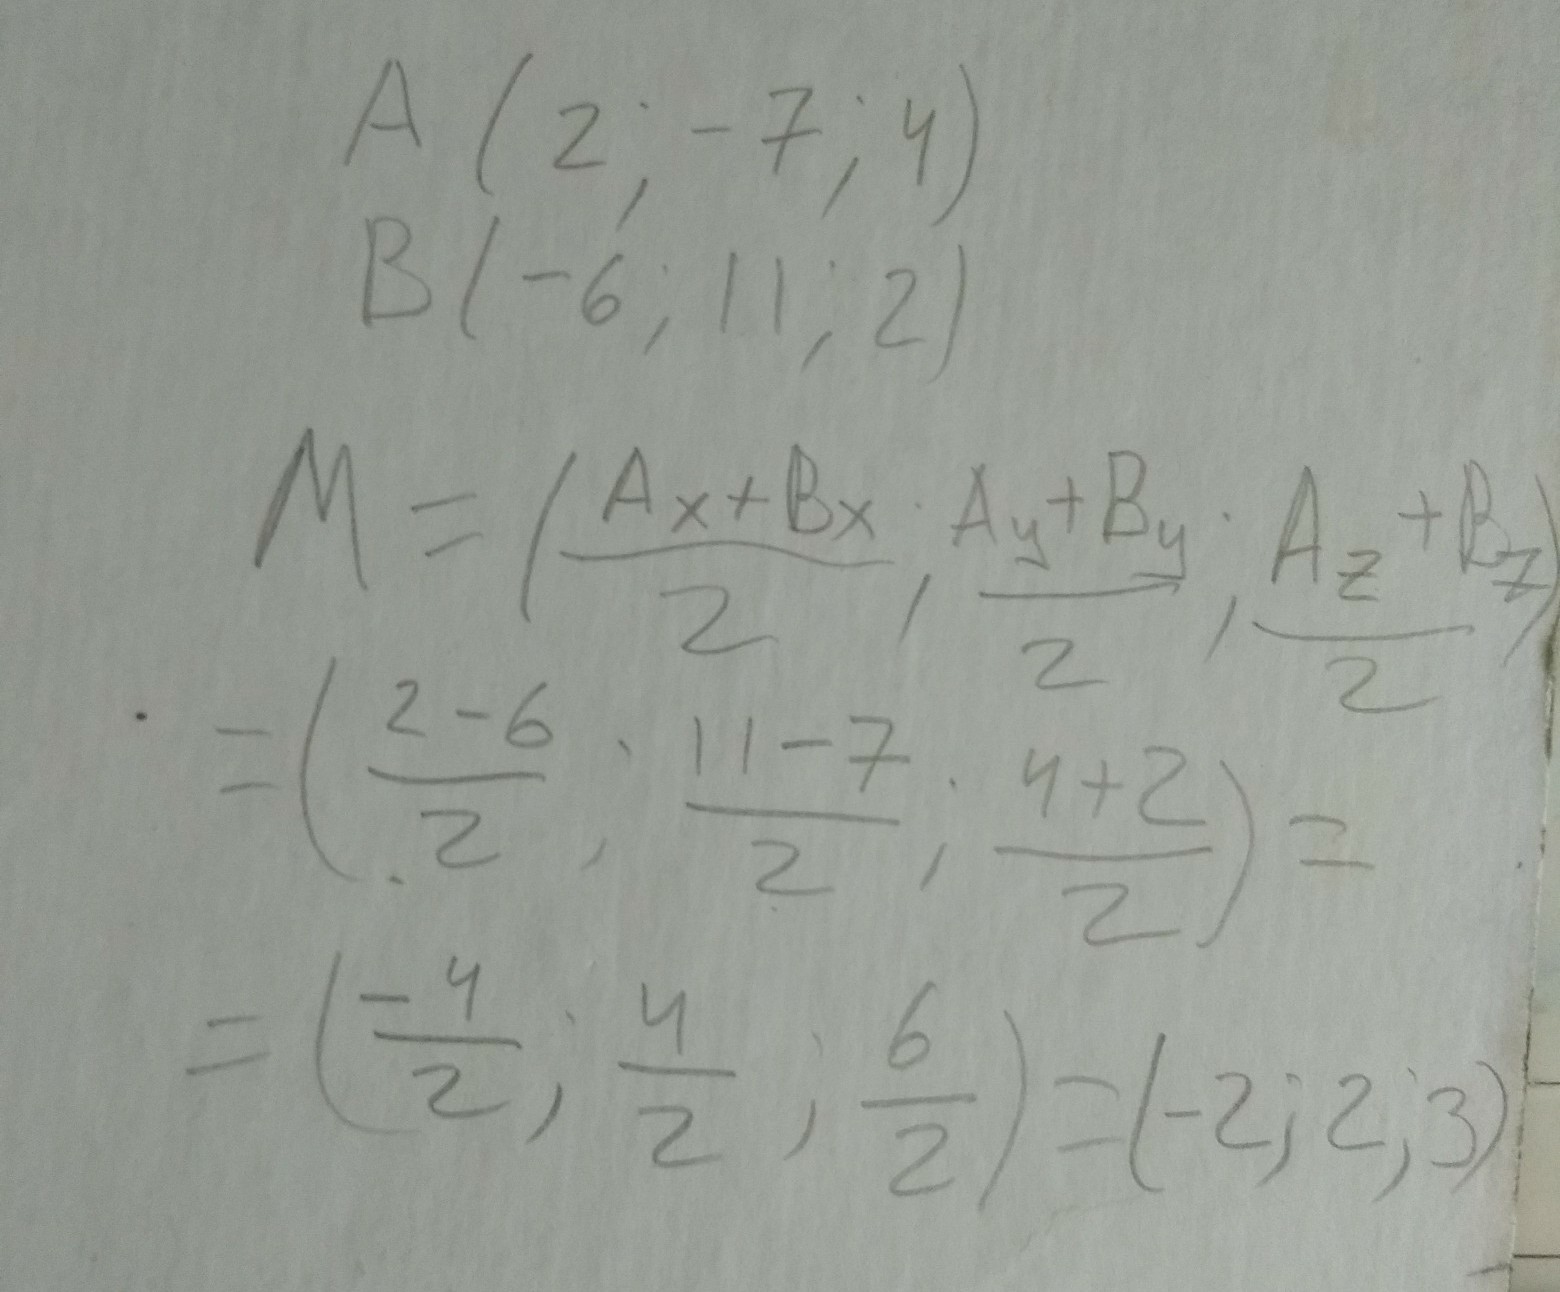 A (2; -7; 4)
B(-6; 11; 2)
M = (Ax+Bx/2; Ay+By/2; Az+Bz/2)
= (2-6/2; 11-7/2; 4+2/2) =
= (-4/2; 4/2; 6/2) = (-2; 2; 3)